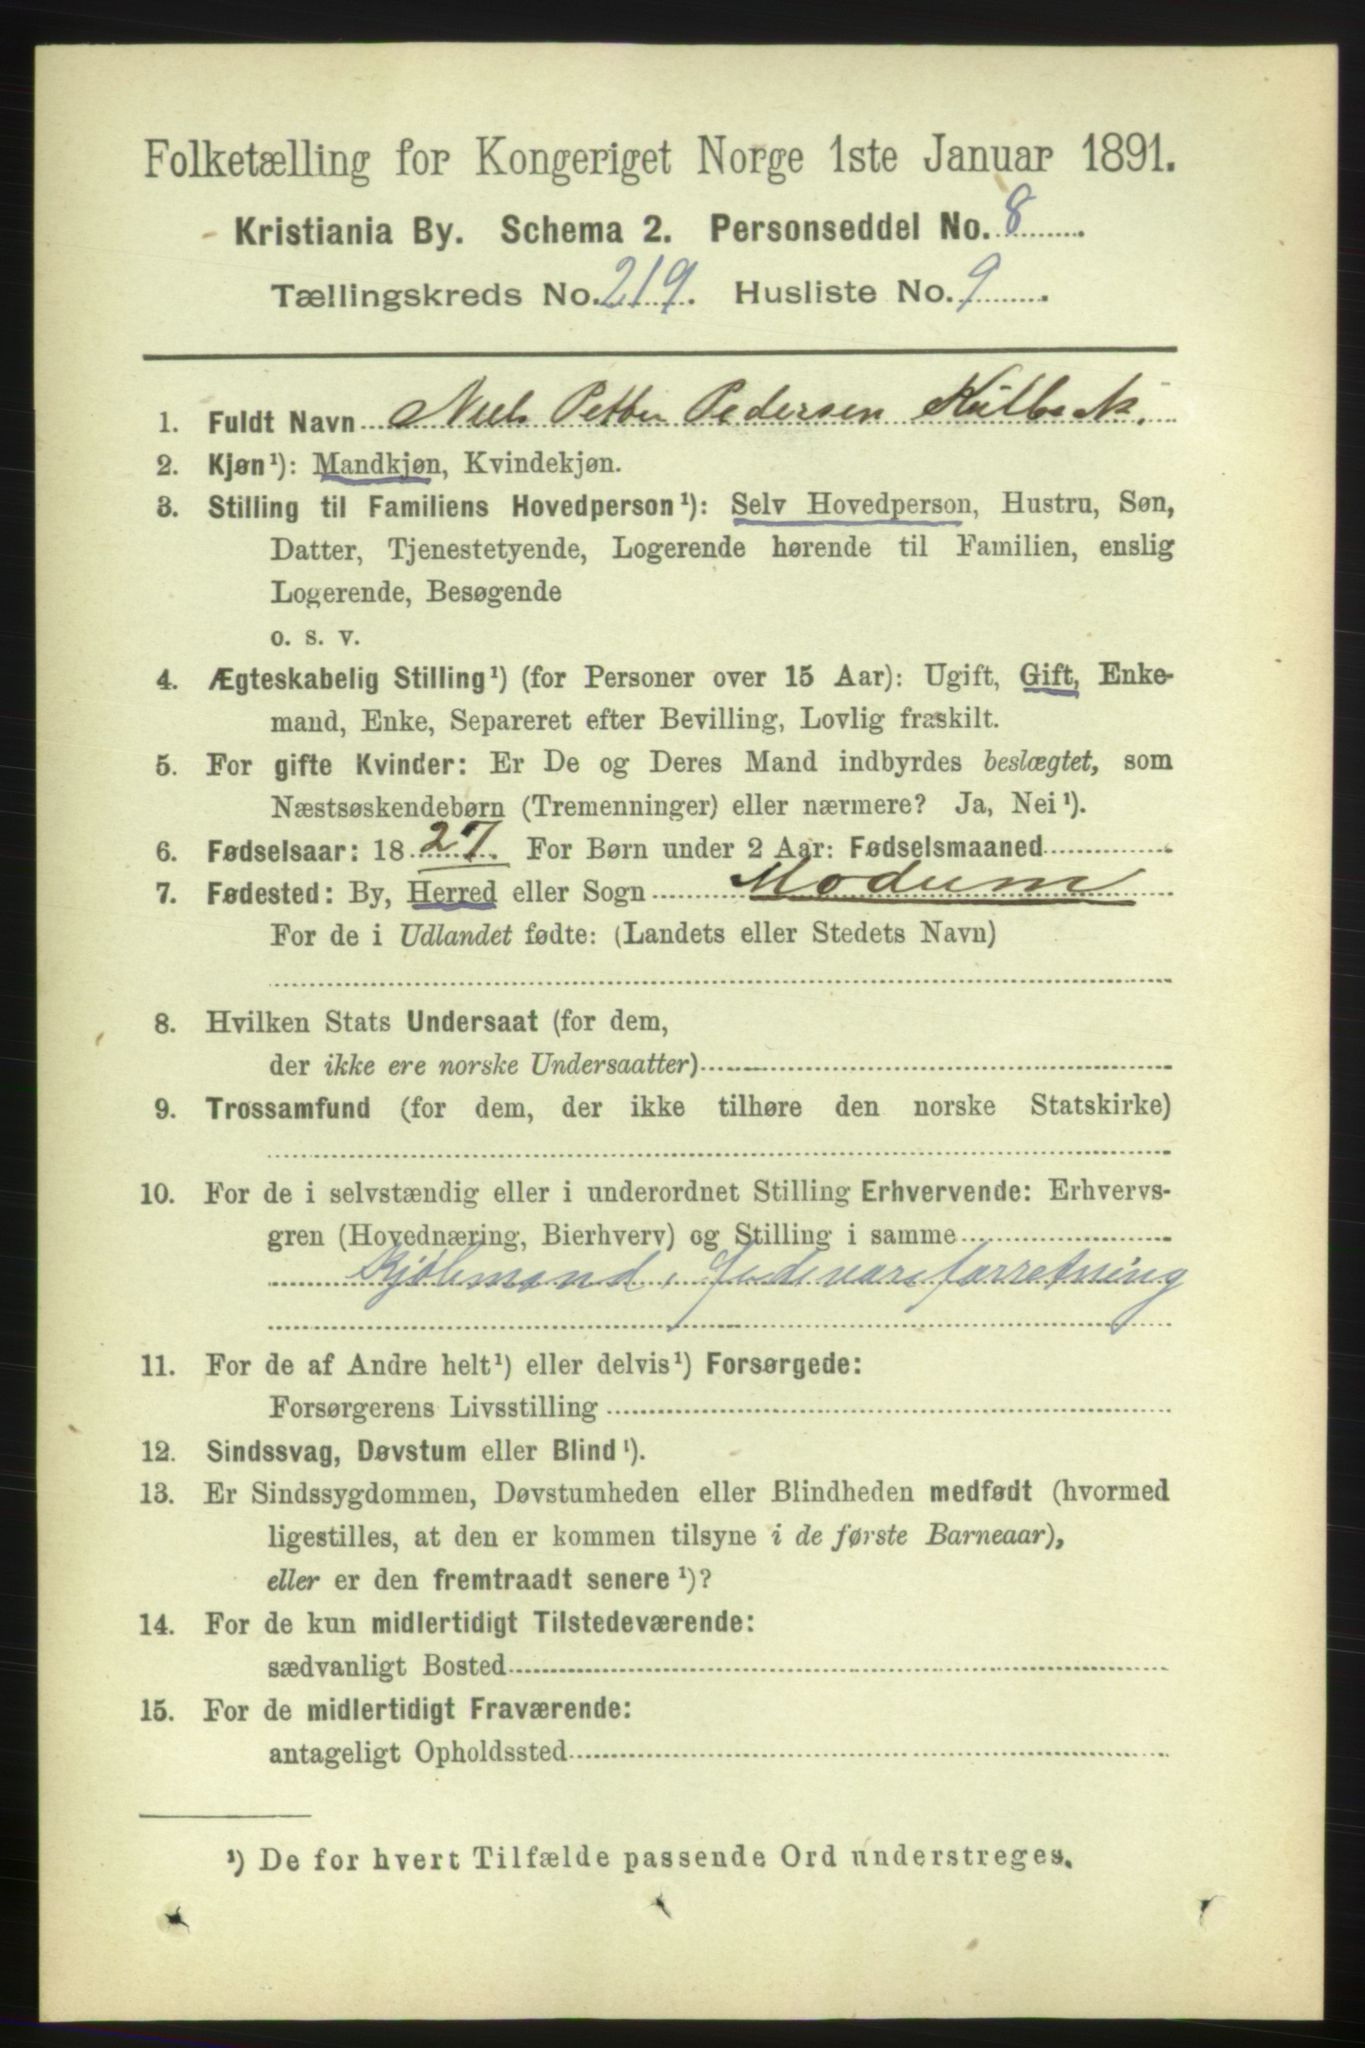 Folketælling for Kongeriget Norge 1ste Januar 1891.
Kristiania By. Schema 2. Personseddel No. 8
Tællingskreds No. 219. Husliste No. 9
1. Fuldt Navn Niels Petter Pedersen
2. Kjøn¹): Mandkjøn, Kvindekjøn.
3. Stilling til Familiens Hovedperson¹): Selv Hovedperson, Hustru, Søn,
Datter, Tjenestetyende, Logerende hørende til Familien, enslig
Logerende, Besøgende
o. s. v.
4. Ægteskabelig Stilling¹) (for Personer over 15 Aar): Ugift, Gift, Enke-
mand, Enke, Separeret efter Bevilling, Lovlig fraskilt.
5. For gifte Kvinder: Er De og Deres Mand indbyrdes beslægtet, som
Næstsøskendebørn (Tremenninger) eller nærmere? Ja, Nei¹).
6. Fødselsaar: 1827. For Børn under 2 Aar: Fødselsmaaned
7. Fødested: By, Herred eller Sogn Modum
For de i Udlandet fødte: (Landets eller Stedets Navn)
8. Hvilken Stats Undersaat (for dem,
der ikke ere norske Undersaatter)
9. Trossamfund (for dem, der ikke tilhøre den norske Statskirke)
10. For de i selvstændig eller i underordnet Stilling Erhvervende: Erhvervs-
gren (Hovednæring, Bierhverv) og Stilling i samme
Kjøbmand,
11. For de af Andre helt¹) eller delvis¹) Forsørgede:
Forsørgerens Livsstilling
12. Sindssvag, Døvstum eller Blind¹).
13. Er Sindssygdommen, Døvstumheden eller Blindheden medfødt (hvormed
ligestilles, at den er kommen tilsyne i de første Barneaar),
eller er den fremtraadt senere¹)?
14. For de kun midlertidigt Tilstedeværende:
sædvanligt Bosted
15. For de midlertidigt Fraværende:
antageligt Opholdssted
¹) De for hvert Tilfælde passende Ord understreges.